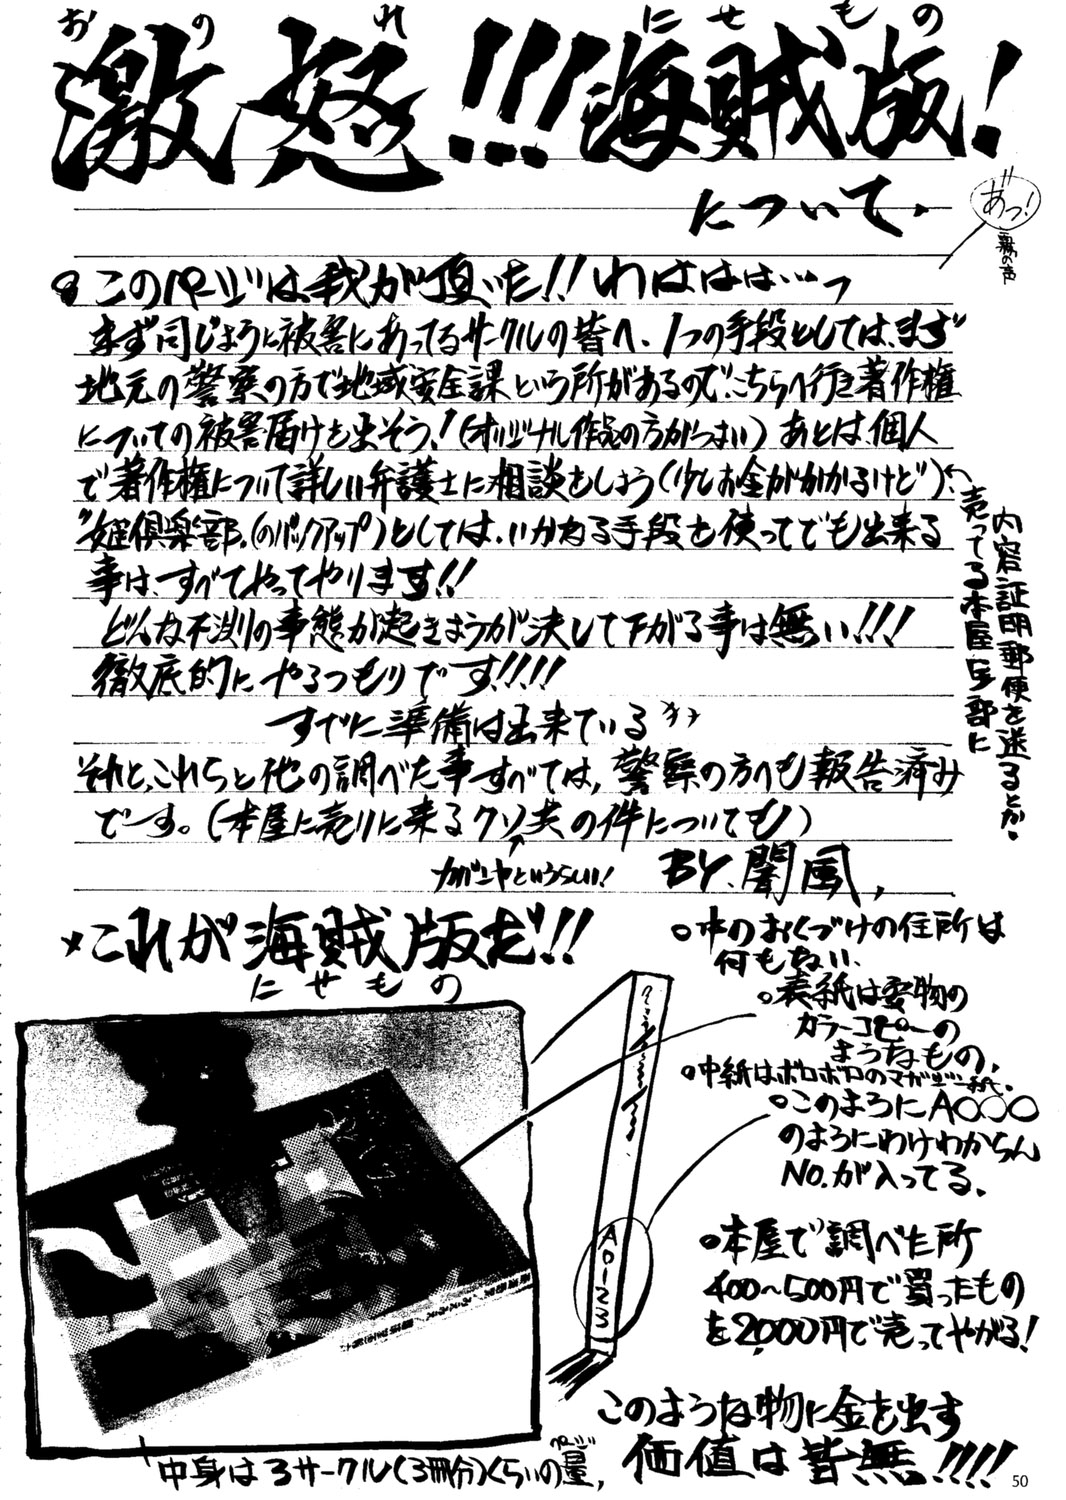 おのれ
にせもの
激怒!!!海賊版!
について.
"あっ!
霧の声
8 このページは我が頂いた!! わははは…っ
まず同じように被害にあってるサークルの皆へ、1つの手段としては、まず
地元の警察の方で地域安全課という所があるので、こちらへ行き著作権
についての被害届けを出そう!(オリジナル作品の方がつよい) あとは、個人
で著作権について詳しい弁護士に相談をしよう(少しお金がかかるけど)
内容証明郵便を送るとか.
売ってる本屋に
"姫倶楽部"(のバックアップ)としては、いかなる手段を使ってでも出来る
事は、すべてやってやります!!
どんな不測の事態が起きようが決して下がる事は無い!!!
徹底的にやるつもりです!!!!
すでに準備は出来ている
それと、これらと他の調べた事すべては、警察の方へも報告済み
です。(本屋に売りに来るクソ共の件についても)
というらしい!
BY.闇風.
これが海賊版だ!!
にせもの
中のおくづけの住所は
何もない.
表紙は安物の
カラーコピーの
ようなもの.
中紙はボロボロのマガジン紙.
このようにA〇〇〇
のようにわけわからん
NO.が入ってる.
A0123
本屋で調べた所
400~500円で買ったもの
を2,000円で売ってやがる!
このような物に金を出す
価値は皆無!!!!
ページ
中身は3サークル(3冊分)くらいの量,
50